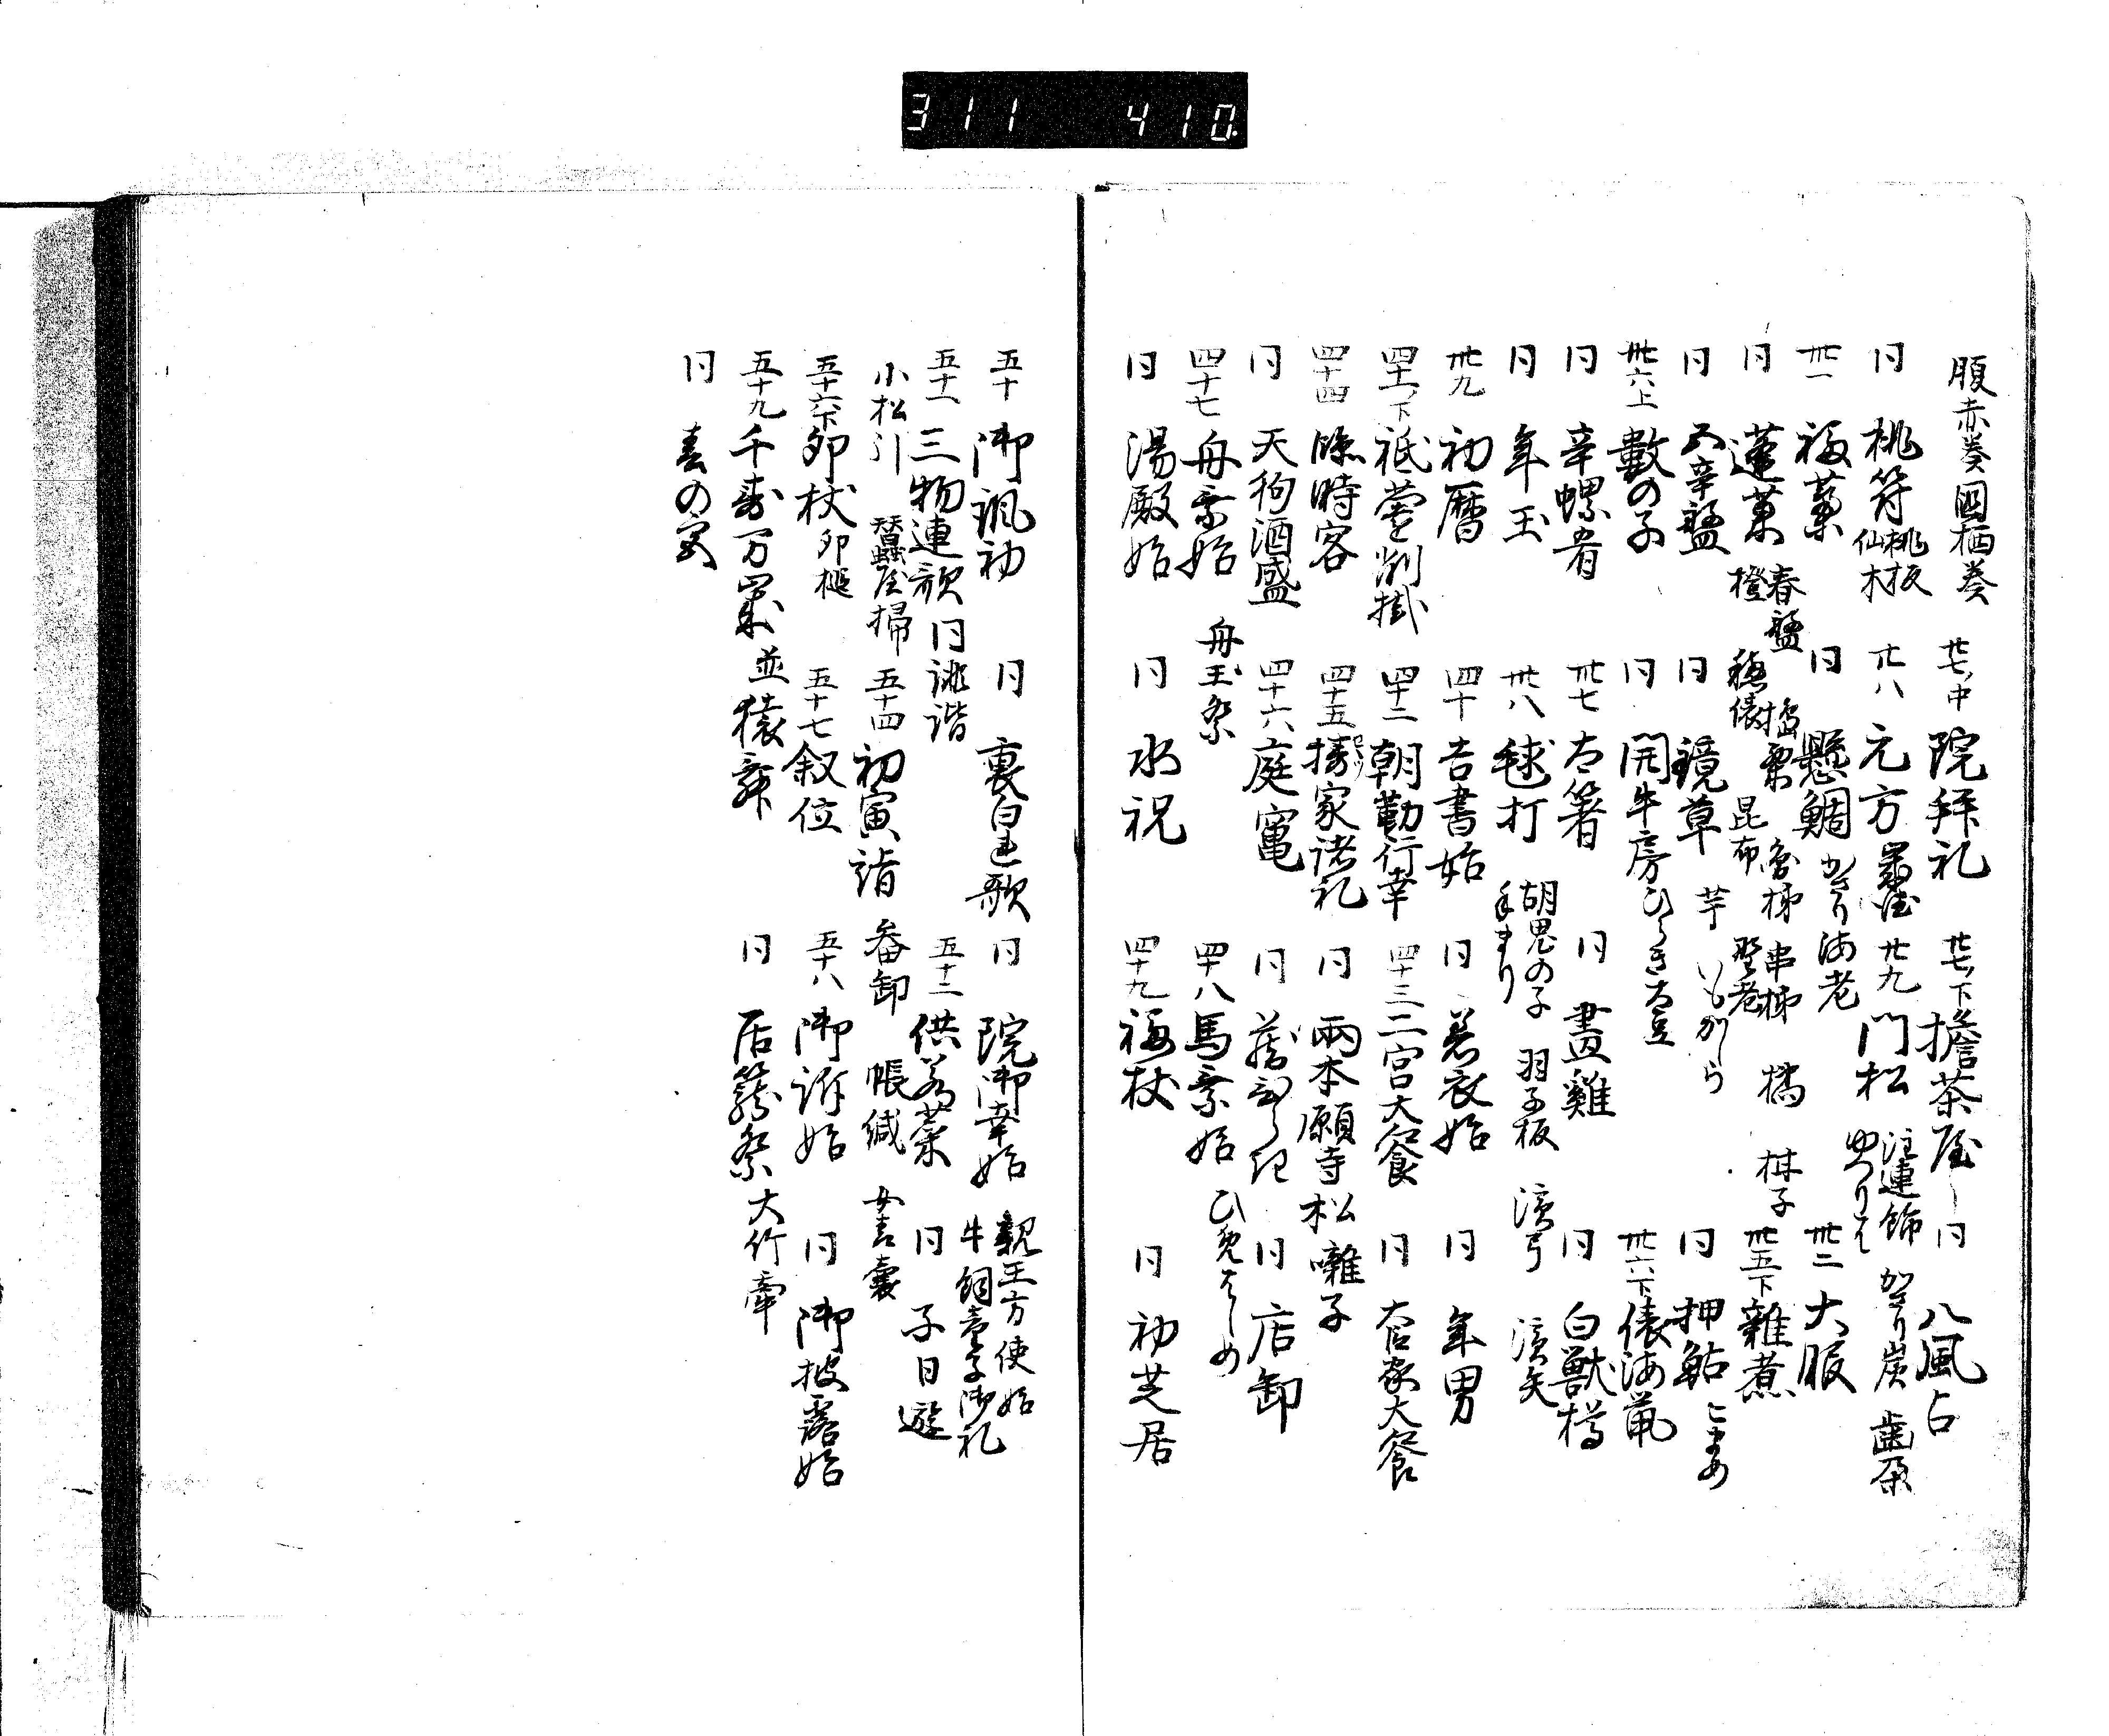 311 410
腹赤奏 國栖奏 廿七ノ中 院拝礼 廿七ノ下 擔茶屋 同 八風占
同 桃符 桃板 仙木 廿八 元方 廿九 門松 注連飾 ゆつりは かさり炭 歯朶
卅一 福藁 同 懸鯛 かさり海老 卅二 大服
同 蓬莱 春盤 橙 搗栗 穂俵 昆布 串柿 野老 橘 卅五下 雑煮
同 五辛盤 同 鏡草 芋 いもがら 同 押鮎 こまめ
卅六上 數の子 同 開牛房 ひらき大豆 卅六下 俵海鼠
同 辛螺肴 卅七 太箸 同 畫雞 同 白獣樽
同 年玉 卅八 毬打 手まり 胡鬼の子 羽子板 濱弓 濱矢
卅九 初暦 四十 吉書始 同 着衣始 同 年男
四十一ノ下 祇薗削掛 四十二 朝勤行幸 四十三 二宮大饗 同 大臣家大饗
四十四 臨時客 四十五 摂家諸礼 同 兩本願寺松囃子
同 天狗酒盛 四十六 庭竈 同 蔵ひらき 同 店卸
四十七 舟乗始 舟玉祭 四十八 馬乗始 ひめはしめ
同 湯殿始 同 水祝 四十九 福杖 同 初芝居
五十 御諷初 同 裏白連歌 同 院御幸始 親王方使始 牛飼童子御礼
五十一 三物連歌 同誹諧 五十二 供若菜 同 子日遊
小松引 蚕屋掃 五十四 初寅詣 番卸 帳綴
五十六下 卯杖 卯槌 五十七 叙位 五十八 御祈始 同 御披露始
五十九 千寿万歳 並猿舞 同 居籠祭 大竹牽
同 春の宮